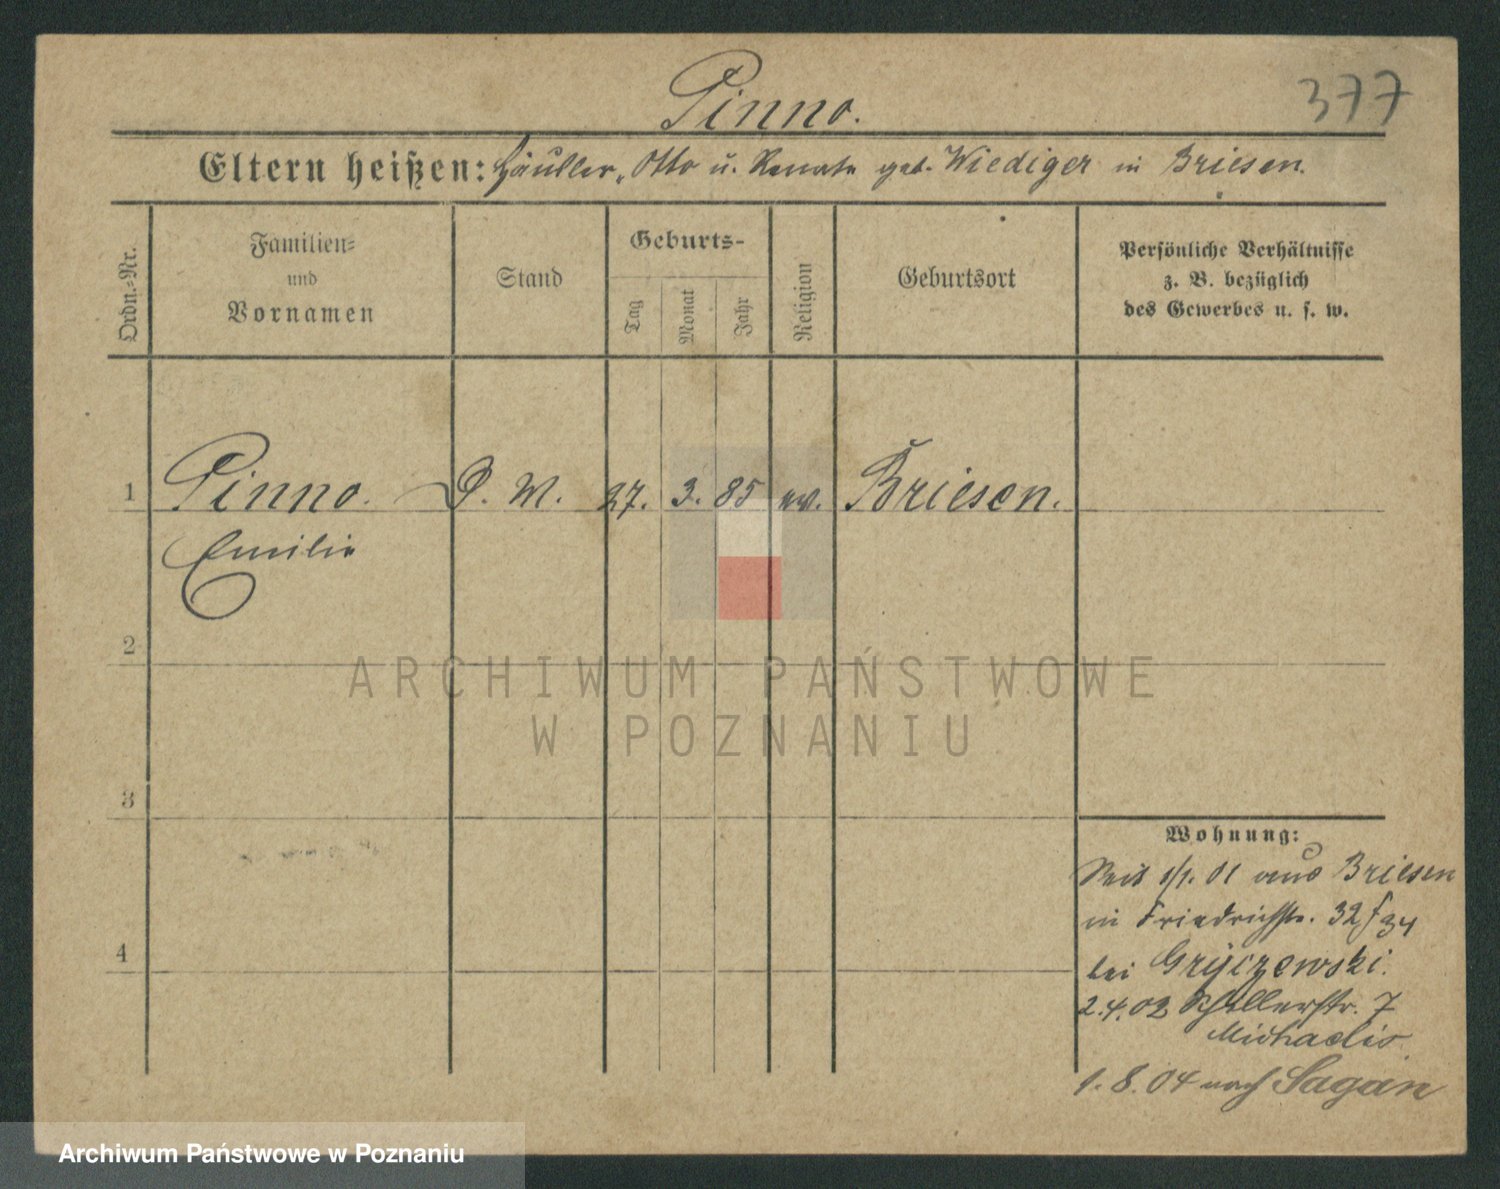 377
Pinno.
Eltern heißen: Häusler, Otto u. Renate geb. Wiediger in Briesen.
Ordn.-Nr.
Familien-
und
Vornamen
Stand
Geburts-
Tag
Monat
Jahr
Religion
Geburtsort
Persönliche Verhältnisse
z. B. bezüglich
des Gewerbes u. s. w.
1 Pinno. D. M. 27. 3. 85 ev. Briesen.
Emilie
2
3
4
Wohnung:
Seit 1/1. 01 aus Briesen
in Friedrichstr. 32/34
bei Gryczewski.
2.4.02 Schillerstr. 7
Michaelis.
1. 8. 04 nach Sagan
ARCHIWUM PAŃSTWOWE
W POZNANIU
Archiwum Państwowe w Poznaniu